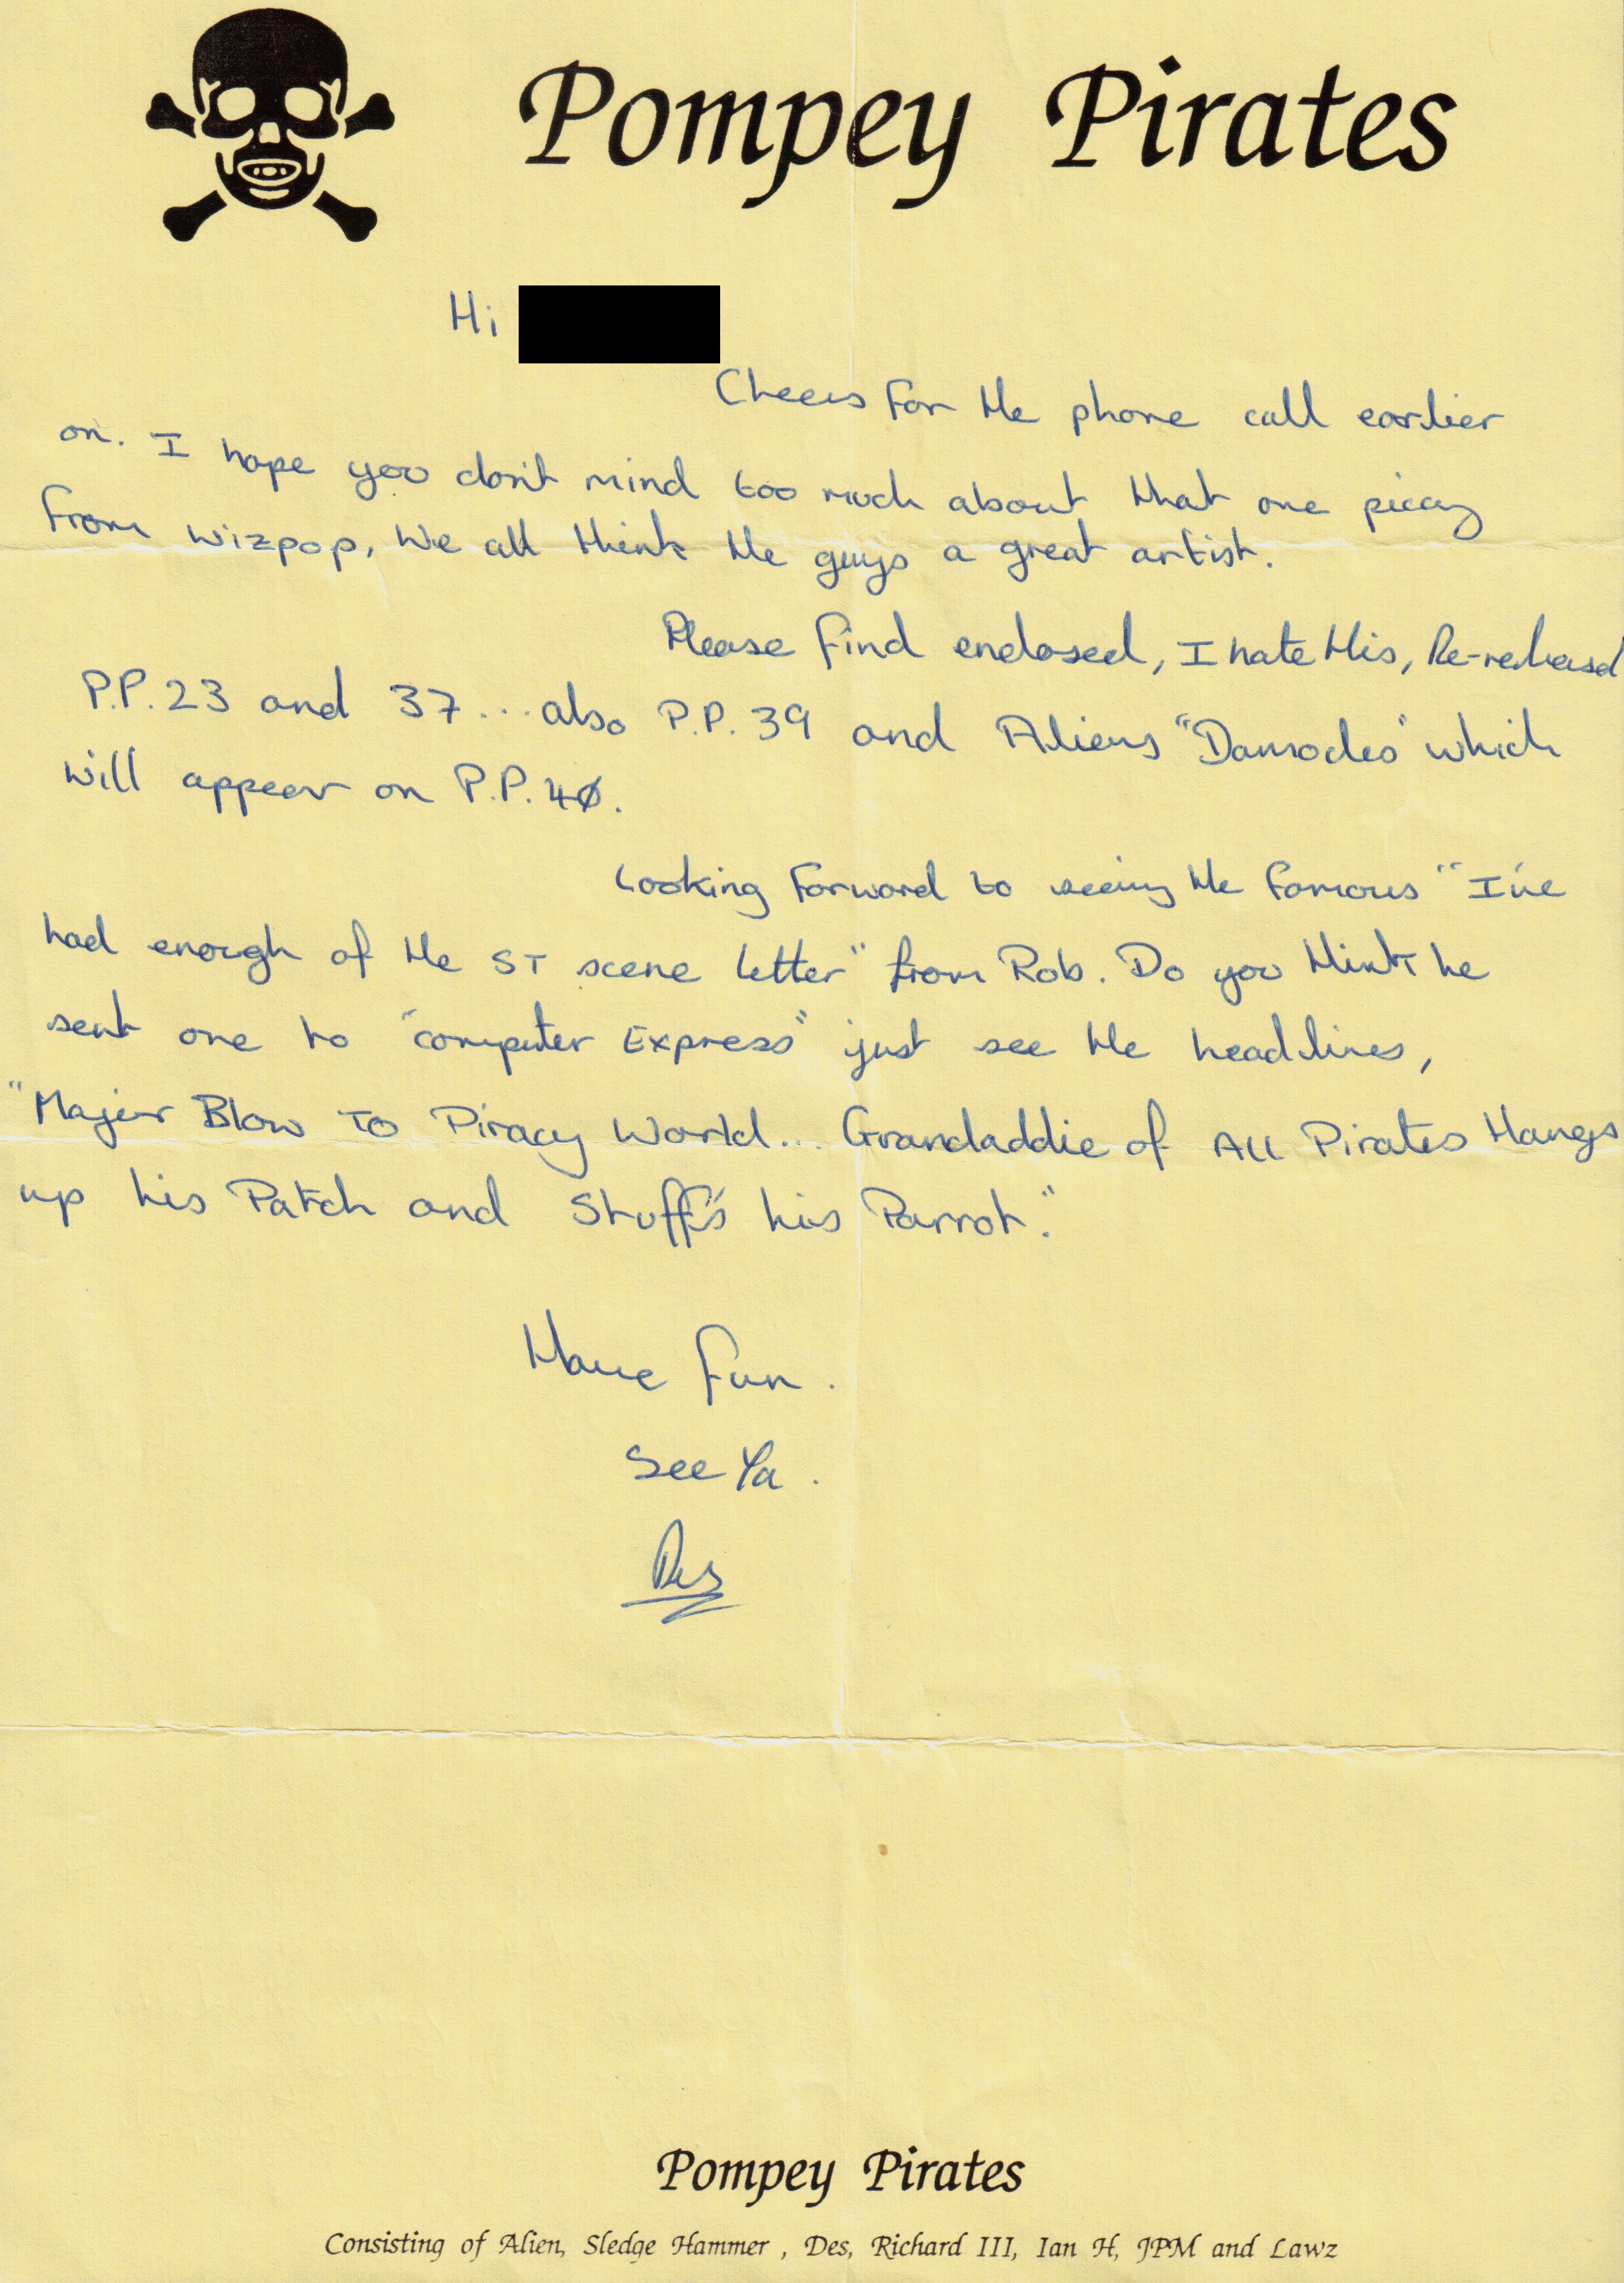 Pompey Pirates
Hi
Cheers for the phone call earlier
on. I hope you don't mind too much about that one piccy
from Wizpop, We all think the guys a great artist.
Please find enclosed, I hate this, Re-released
P.P.23 and 37... also P.P.39 and Aliens "Damocles" which
will appear on P.P.40.
Looking forward to seeing the famous "I've
had enough of the ST scene letter" from Rob. Do you think he
sent one to "computer Express" just see the headlines,
"Major Blow To Piracy World... Grandaddie of All Pirates Hangs
up his Patch and Stuff's his Parrot."
Have fun.
See Ya.
Des
Pompey Pirates
Consisting of Alien, Sledge Hammer , Des, Richard III, Ian H, JPM and Lawz